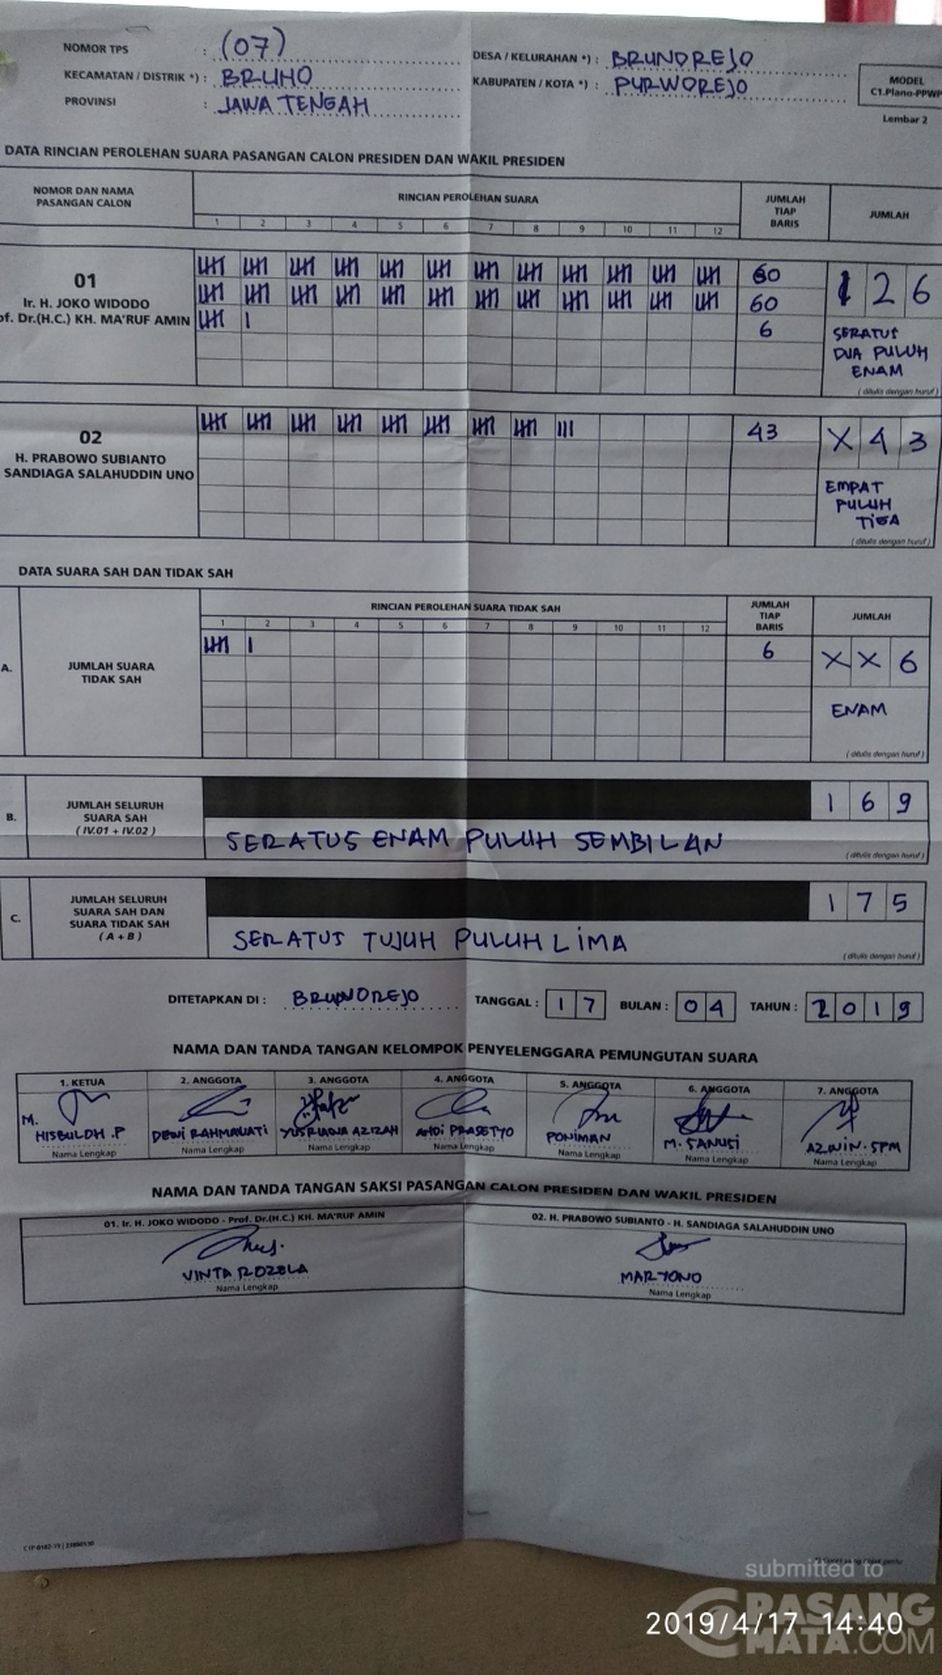 NOMOR TPS : (07)
DESA / KELURAHAN *) : BRUNOREJO
KECAMATAN / DISTRIK *) : BRUNO
KABUPATEN / KOTA *) : PURWOREJO
PROVINSI : JAWA TENGAH
MODEL
C1.Plano-PPWP
Lembar 2
DATA RINCIAN PEROLEHAN SUARA PASANGAN CALON PRESIDEN DAN WAKIL PRESIDEN
NOMOR DAN NAMA
PASANGAN CALON
RINCIAN PEROLEHAN SUARA
1 2 3 4 5 6 7 8 9 10 11 12
JUMLAH
TIAP
BARIS
JUMLAH
01
Ir. H. JOKO WIDODO
of. Dr.(H.C.) KH. MA'RUF AMIN
60
60
6
1 2 6
SERATUS
DUA PULUH
ENAM
(ditulis dengan huruf)
02
H. PRABOWO SUBIANTO
SANDIAGA SALAHUDDIN UNO
43
X 4 3
EMPAT
PULUH
TIGA
(ditulis dengan huruf)
DATA SUARA SAH DAN TIDAK SAH
RINCIAN PEROLEHAN SUARA TIDAK SAH
1 2 3 4 5 6 7 8 9 10 11 12
JUMLAH
TIAP
BARIS
JUMLAH
A.
JUMLAH SUARA
TIDAK SAH
6
X X 6
ENAM
(ditulis dengan huruf)
B.
JUMLAH SELURUH
SUARA SAH
(IV.01 + IV.02)
1 6 9
SERATUS ENAM PULUH SEMBILAN
(ditulis dengan huruf)
C.
JUMLAH SELURUH
SUARA SAH DAN
SUARA TIDAK SAH
(A + B)
1 7 5
SERATUS TUJUH PULUH LIMA
(ditulis dengan huruf)
DITETAPKAN DI : BRUNOREJO TANGGAL : 17 BULAN : 04 TAHUN : 2019
NAMA DAN TANDA TANGAN KELOMPOK PENYELENGGARA PEMUNGUTAN SUARA
1. KETUA 2. ANGGOTA 3. ANGGOTA 4. ANGGOTA 5. ANGGOTA 6. ANGGOTA 7. ANGGOTA
M.
HISBULOH .P DEWI RAHMAWATI YUSRIANA AZIZAH ANDI PRASETYO PONIMAN M. SANUSI AZWIN. SPM
Nama Lengkap Nama Lengkap Nama Lengkap Nama Lengkap Nama Lengkap Nama Lengkap Nama Lengkap
NAMA DAN TANDA TANGAN SAKSI PASANGAN CALON PRESIDEN DAN WAKIL PRESIDEN
01. Ir. H. JOKO WIDODO - Prof. Dr.(H.C.) KH. MA'RUF AMIN
02. H. PRABOWO SUBIANTO - H. SANDIAGA SALAHUDDIN UNO
VINTA ROZELA
Nama Lengkap
MARYONO
Nama Lengkap
submitted to
PASANG
MATA.COM
2019/4/17 14:40